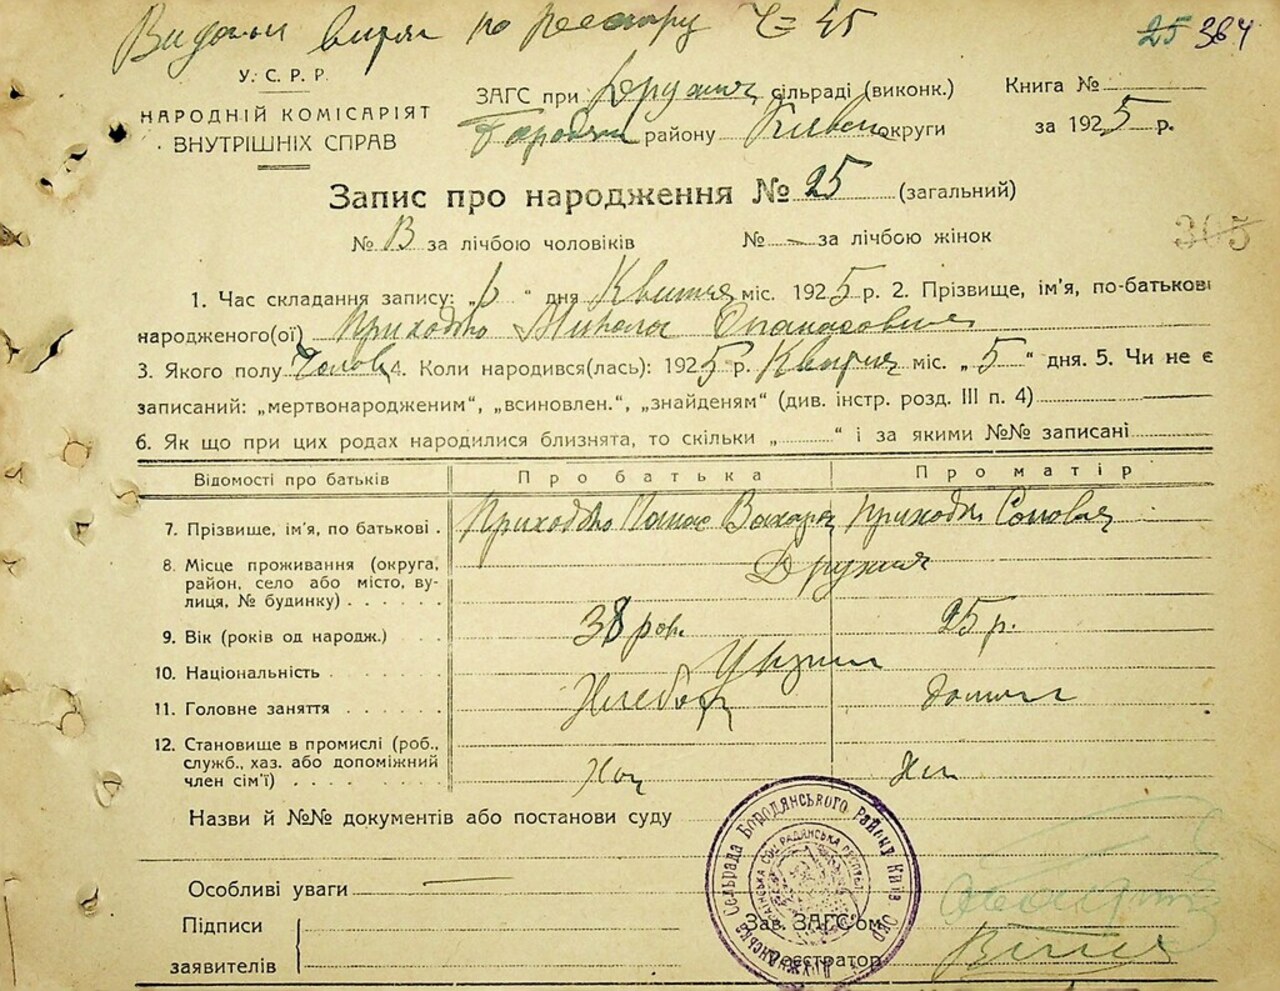 Видани витяг по Реєстру Ч= 45
25 364
У. С. Р. Р.
НАРОДНІЙ КОМІСАРІЯТ
ВНУТРІШНІХ СПРАВ
ЗАГС при Дружня сільраді (виконк.)
Бородян району Київськ округи
Книга №
за 1925 р.
Запис про народження № 25 (загальний)
№ В за лічбою чоловіків № — за лічбою жінок
305
1. Час складання запису: „6“ дня Квітня міс. 1925 р. 2. Прізвище, ім'я, по-батькові
народженого(ої) Приходько Микола Опанасович
3. Якого полу Чолов 4. Коли народився(лась): 1925 р. Квітня міс. „5“ дня. 5. Чи не є
записаний: „мертвонародженим“, „всиновлен.“, „знайденям“ (див. інстр. розд. III п. 4)
6. Як що при цих родах народилися близнята, то скільки „ “ і за якими №№ записані
Відомості про батьків Про батька Про матір
7. Прізвище, ім'я, по батькові . Приходько Панас Захаро Приходько
8. Місце проживання (округа,
район, село або місто, ву-
лиця, № будинку) . . . . . . Дружня
9. Вік (років од народж.) . . . 38 рок. 25 р.
10. Національність . . . . . . Україн
11. Головне заняття . . . . . . Хлебор домаш
12. Становище в промислі (роб.,
служб., хаз. або допоміжний
член сім'ї) . . . . . . . . Хаз
Назви й №№ документів або постанови суду
Особливі уваги —
Підписи
заявителів
Зав. ЗАГС'ом
Реєстратор
Дружнянська Сельрада Бородянського району Київ Окр